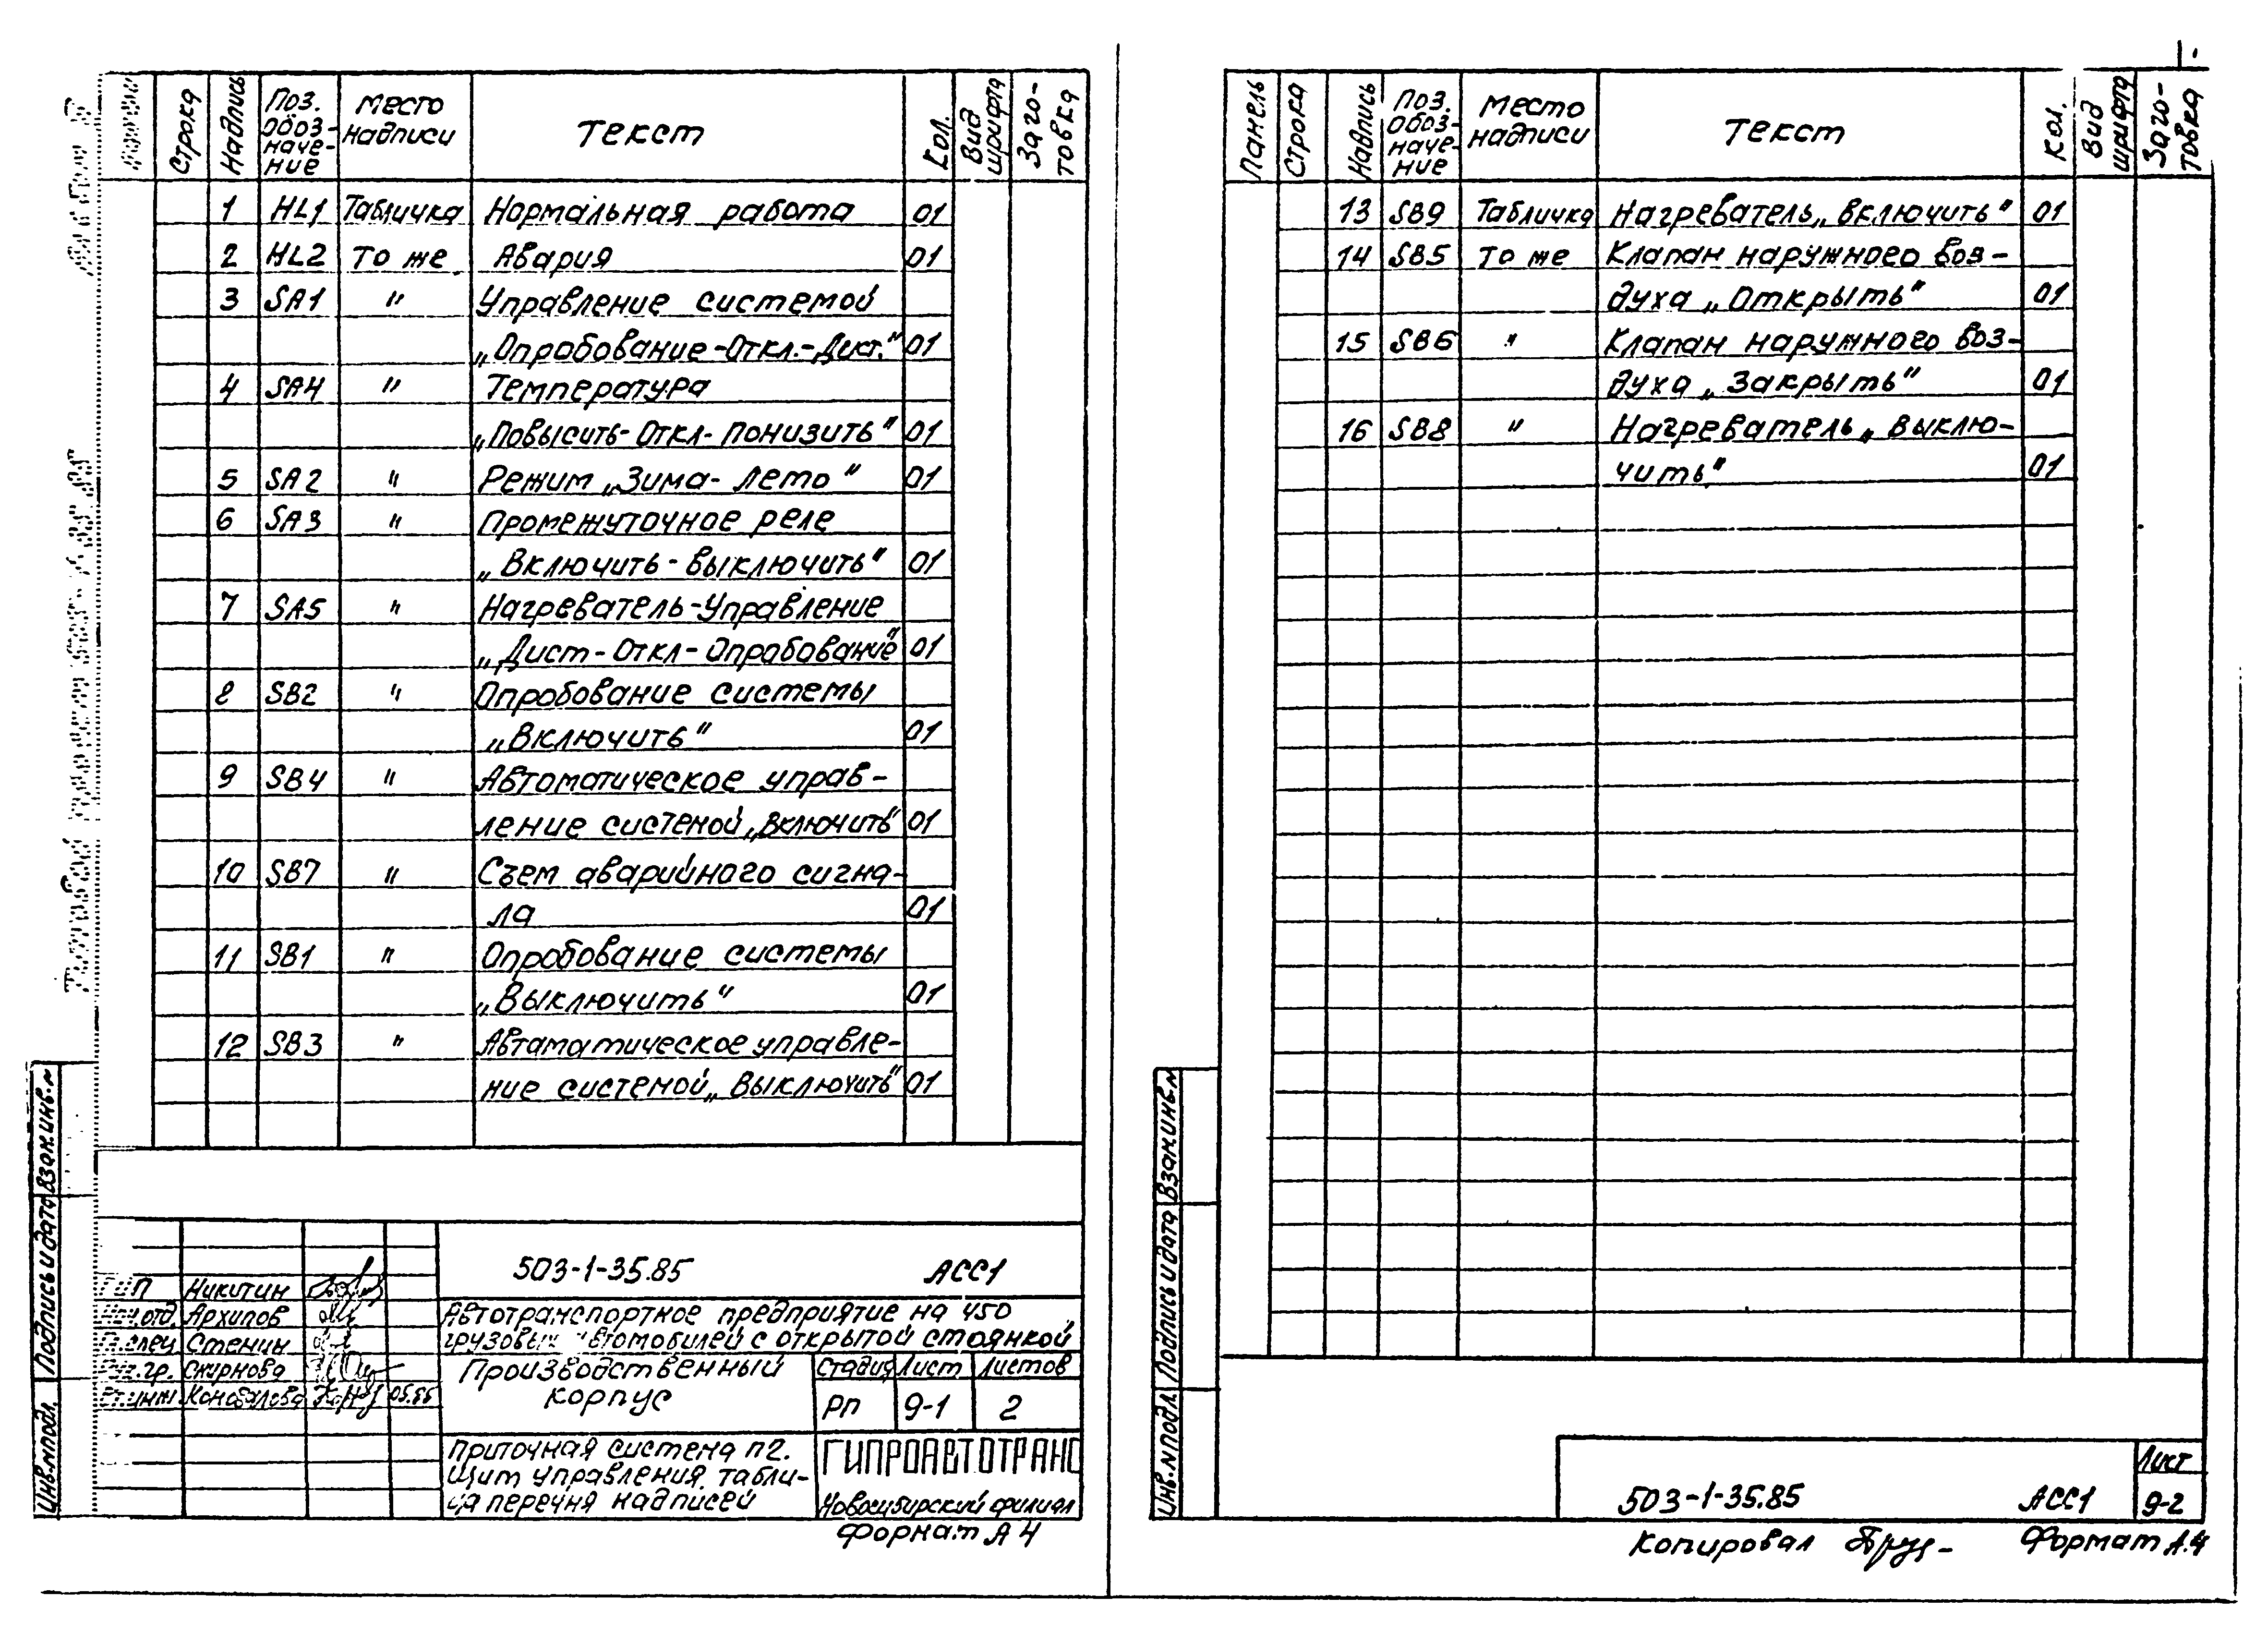 Строка Надпись Поз. обозначение Место надписи Текст Кол. Вид шрифта Заготовка
1 HL1 Табличка Нормальная работа 01
2 HL2 То же Авария 01
3 SA1 " Управление системой
„Опробование-Откл.-Дист." 01
4 SA4 " Температура
„Повысить-Откл-Понизить" 01
5 SA2 " Режим „Зима-Лето" 01
6 SA3 " Промежуточное реле
„Включить-выключить" 01
7 SA5 " Нагреватель-Управление
„Дист-Откл-Опробование" 01
8 SB2 " Опробование системы
„Включить" 01
9 SB4 " Автоматическое управ-
ление системой „Включить" 01
10 SB7 " Съем аварийного сигна-
ла 01
11 SB1 " Опробование системы
„Выключить" 01
12 SB3 " Автаматическое управле-
ние системой „Выключить" 01
Взам.инв.№
Подпись и дата
Инв.№подл.
503-1-35.85 АСС1
ГИП Никитин
Нач.отд. Архипов
Гл.спец Стенин
Рук.гр. Смирнова
Ст.инж. Коновалова 05.85
Автотранспортное предприятие на 450
грузовых автомобилей с открытой стоянкой
Производственный
корпус
Стадия Лист Листов
РП 9-1 2
Приточная система П2.
Щит управления. Табли-
ца перечня надписей
ГИПРОАВТОТРАНС
Новосибирский филиал
Формат А4
Панель Строка Надпись Поз. обозначение Место надписи Текст Кол. Вид шрифта Заготовка
13 SB9 Табличка Нагреватель „Включить" 01
14 SB5 То же Клапан наружного воз-
духа „Открыть" 01
15 SB6 " Клапан наружного воз-
духа „Закрыть" 01
16 SB8 " Нагреватель „Выклю-
чить" 01
Взам.инв.№
Подпись и дата
Инв.№подл.
503-1-35.85 АСС1
Лист
9-2
Копировал Формат А4